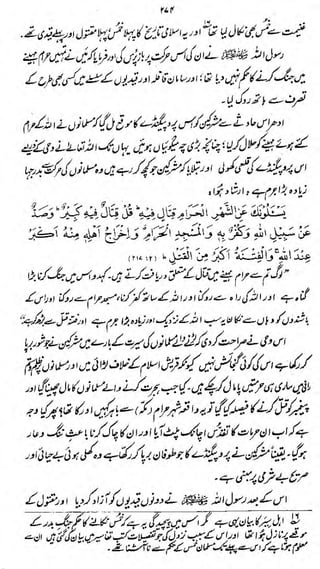 ۲۷۴
غنیمت سے خمس بھی نکال لیا تھا اور یہ اسلامی تاریخ کا پہلا خمس پہلا مقتول اور پہلے قیدی تھے۔
رسول اللہ ﷺ نے ان کی اس حرکت پر باز پرس کی اور فرمایا کہ میں نے تمہیں حرام مہینے
میں جنگ کرنے کا حکم نہیں دیا تھا؛ اور سامان قافلہ اور قیدیوں کے سلسلے میں کسی بھی طرح کے
تصرف سے ہاتھ روک لیا۔
ادھر اس حادثے سے مشرکین کو اس پروپیگنڈے کا موقع مل گیا کہ مسلمانوں نے اللہ کے حرام
کئے ہوئے مہینے کو حلال کر لیا؛ چنانچہ بڑی چہ میگوئیاں ہوئیں یہاں تک کہ اللہ تعالٰے نے وحی کے ذریعے
اس پروپیگنڈے کی قلعی کھولی اور بتلایا کہ مشرکین جو کچھ کر رہے ہیں وہ مسلمانوں کی حرکت سے بدرجہا
زیادہ بڑا جرم ہے: ارشاد ہوا:
يَسْئَلُوْنَكَ عَنِ الشَّهْرِ الْحَرَامِ قِتَالٍ فِيْهِ ۖ قُلْ قِتَالٌ فِيْهِ كَبِيْرٌ ۖ وَصَدٌّ
عَنْ سَبِيْلِ اللهِ وَكُفْرٌ بِهٖ وَالْمَسْجِدِ الْحَرَامِ ۖ وَاِخْرَاجُ اَهْلِهٖ مِنْهُ اَكْبَرُ
عِنْدَ اللهِ ۚ وَالْفِتْنَةُ اَكْبَرُ مِنَ الْقَتْلِ ۖ (۲۱۷:۲)
"لوگ تم سے حرام مہینے میں قتال کے متعلق دریافت کرتے ہیں۔ کہدو اس میں جنگ کرنا بڑا
گناہ ہے اور اللہ کی راہ سے روکنا اور اللہ کے ساتھ کفر کرنا، مسجد حرام سے روکنا اور اس کے
باشندوں کو وہاں سے نکالنا یہ سب اللہ کے نزدیک اور زیادہ بڑا جرم ہے اور فتنہ قتل سے بڑھ کر ہے"
اس وحی نے صراحت کر دی کہ لڑنے والے مسلمانوں کی سیرت کے بارے میں مشرکین نے جو شور برپا
کر رکھا ہے اس کی کوئی گنجائش نہیں کیونکہ قریش اسلام کے خلاف لڑائی میں اور مسلمانوں پر ظلم و ستم
رانی میں ساری ہی حرمتیں پامال کر چکے ہیں۔ کیا جب ہجرت کرنے والے مسلمانوں کا مال چھینا گیا اور
پیغمبر کو قتل کرنے کا فیصلہ کیا گیا تو یہ واقعہ شہر حرام (مکہ) سے باہر کہیں اور کا تھا؟ پھر کیا وجہ
ہے کہ اب ان حرمات کا تقدس اچانک پلٹ آیا اور ان کا چاک کرنا باعث ننگ و عار
ہو گیا۔ یقیناً مشرکین نے پروپیگنڈے کا جو طوفان برپا کر رکھا ہے وہ کھلی ہوئی بے حیائی اور
صریح بے شرمی پر مبنی ہے۔
اس کے بعد رسول اللہ ﷺ نے دونوں قیدیوں کو آزاد کر دیا اور مقتول کے
اہل سیر کا بیان یہی ہے مگر اس میں پیچیدگی یہ ہے کہ خمس نکالنے کا حکم جنگ بدر کے
موقعے پر نازل ہوا تھا اور اس کے سبب نزول کی جو تفصیلات کتب تفاسیر میں بیان کی گئی ہیں ان سے
معلوم ہوتا ہے کہ اس سے پہلے تک مسلمان خمس کے حکم سے نا آشنا تھے۔